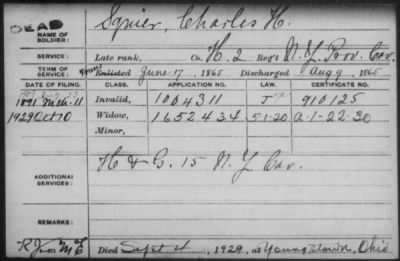 DEAD
Squier, Charles H.
NAME OF SOLDIER:
SERVICE: Late rank, Co. H. 2 Reg't N.Y. Prov. Cav.
TERM OF SERVICE: Enlisted June 17, 1865 Discharged Aug 9, 1865
DATE OF FILING. CLASS. APPLICATION NO. LAW. CERTIFICATE NO.
1891 Mch. 11 Invalid, 1004311 J 910125
1929 Oct 10 Widow, 1652434 5-1-20 A-1-22-30
Minor,
ADDITIONAL SERVICES: H & G. 15 N.Y. Cav.
REMARKS:
Died Sept 4, 1929, at Youngstown, Ohio